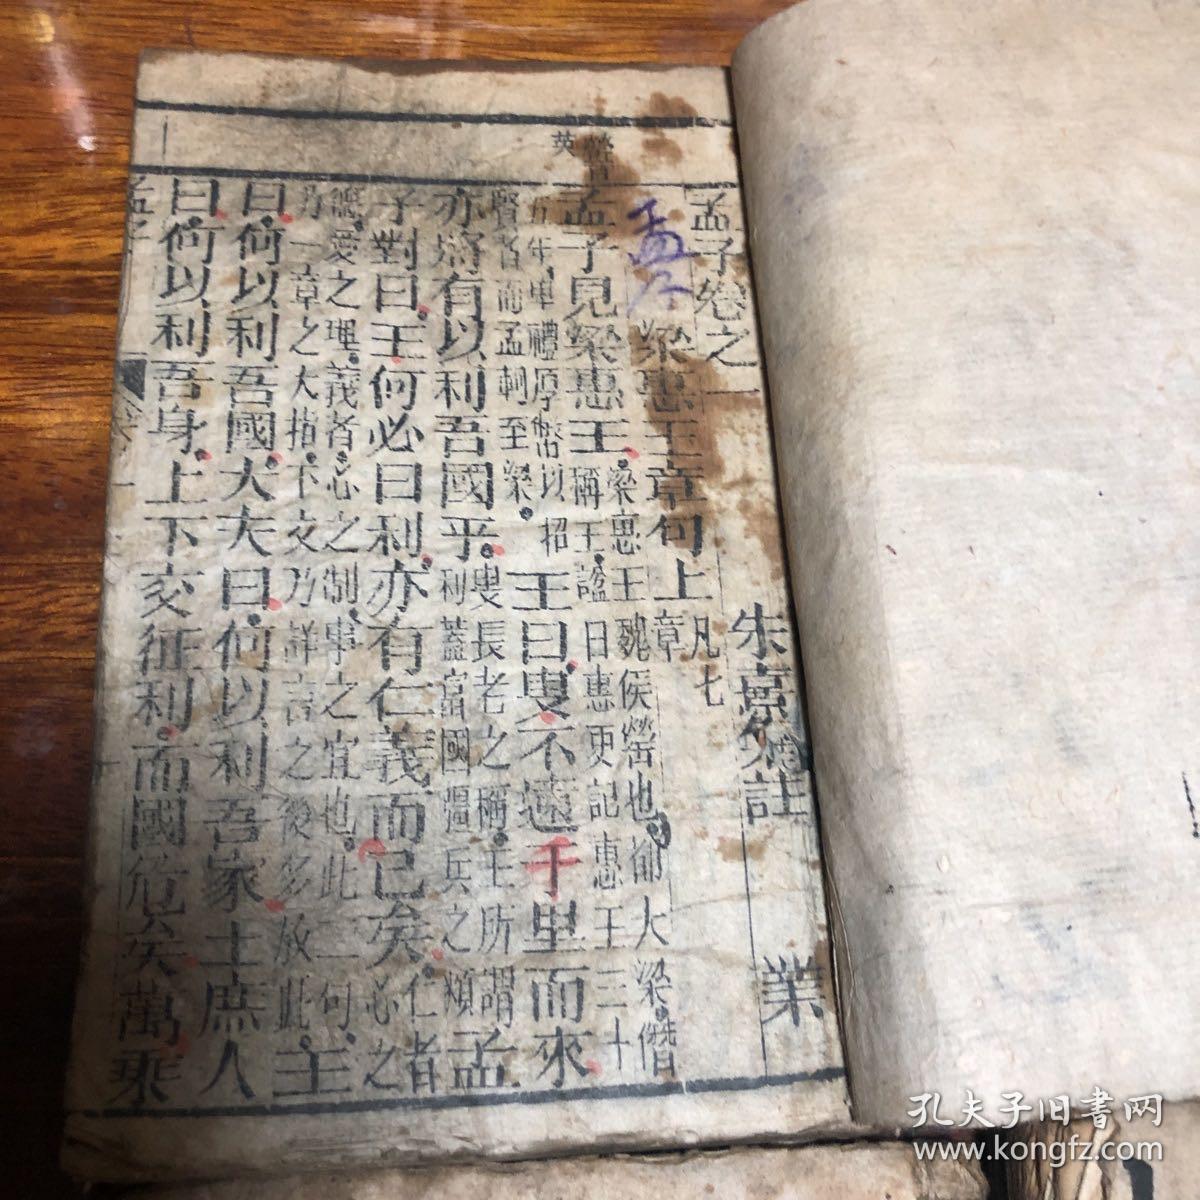 孟子卷之一
朱熹集註
業
梁惠王章句上
凡七
章
孟子
孟子見梁惠王
梁惠王魏侯罃也都大梁僭
稱王謚曰惠史記惠王三十
五年卑禮厚幣以招
賢者而孟軻至梁
王曰叟不遠千里而來
亦將有以利吾國乎
叟長老之稱王所謂
利蓋富國彊兵之類
孟
子對曰王何必曰利亦有仁義而已矣
仁者
心之
德愛之理義者心之制事之宜也此二句
乃一章之大指下文乃詳言之後多放此
王
曰何以利吾國大夫曰何以利吾家士庶人
曰何以利吾身上下交征利而國危矣萬乘
孟子
卷一
罃音
英
孔夫子旧書网
www.kongfz.com